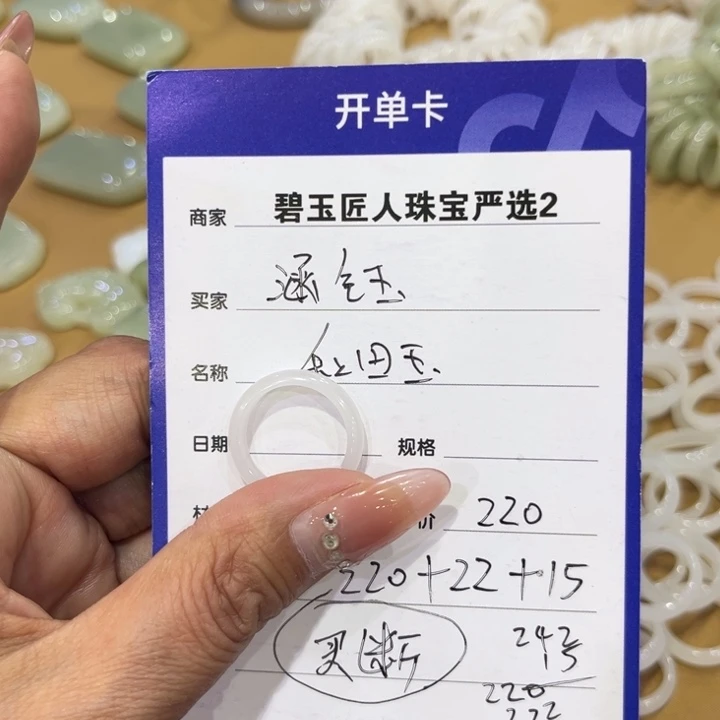 开单卡
商家 碧玉匠人珠宝严选2
买家 涵金玉
名称 和田玉
日期 规格
价 220
220+22+15
买断 242
15
220
222